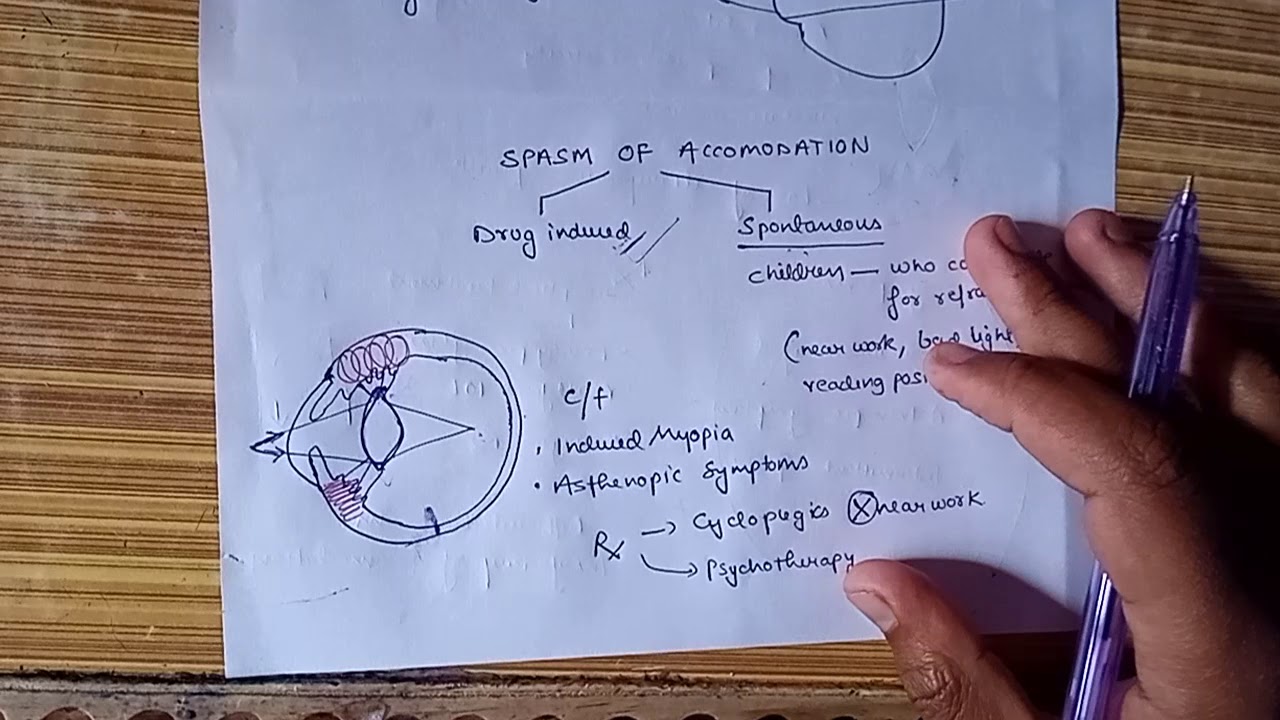 SPASM OF ACCOMODATION
Drug induced
Spontaneous
children — who
for
(near work, bad light
reading
c/f
• Induced Myopia
• Asthenopic Symptoms
Rx → Cycloplegics ⓧ near work
→ Psychotherapy